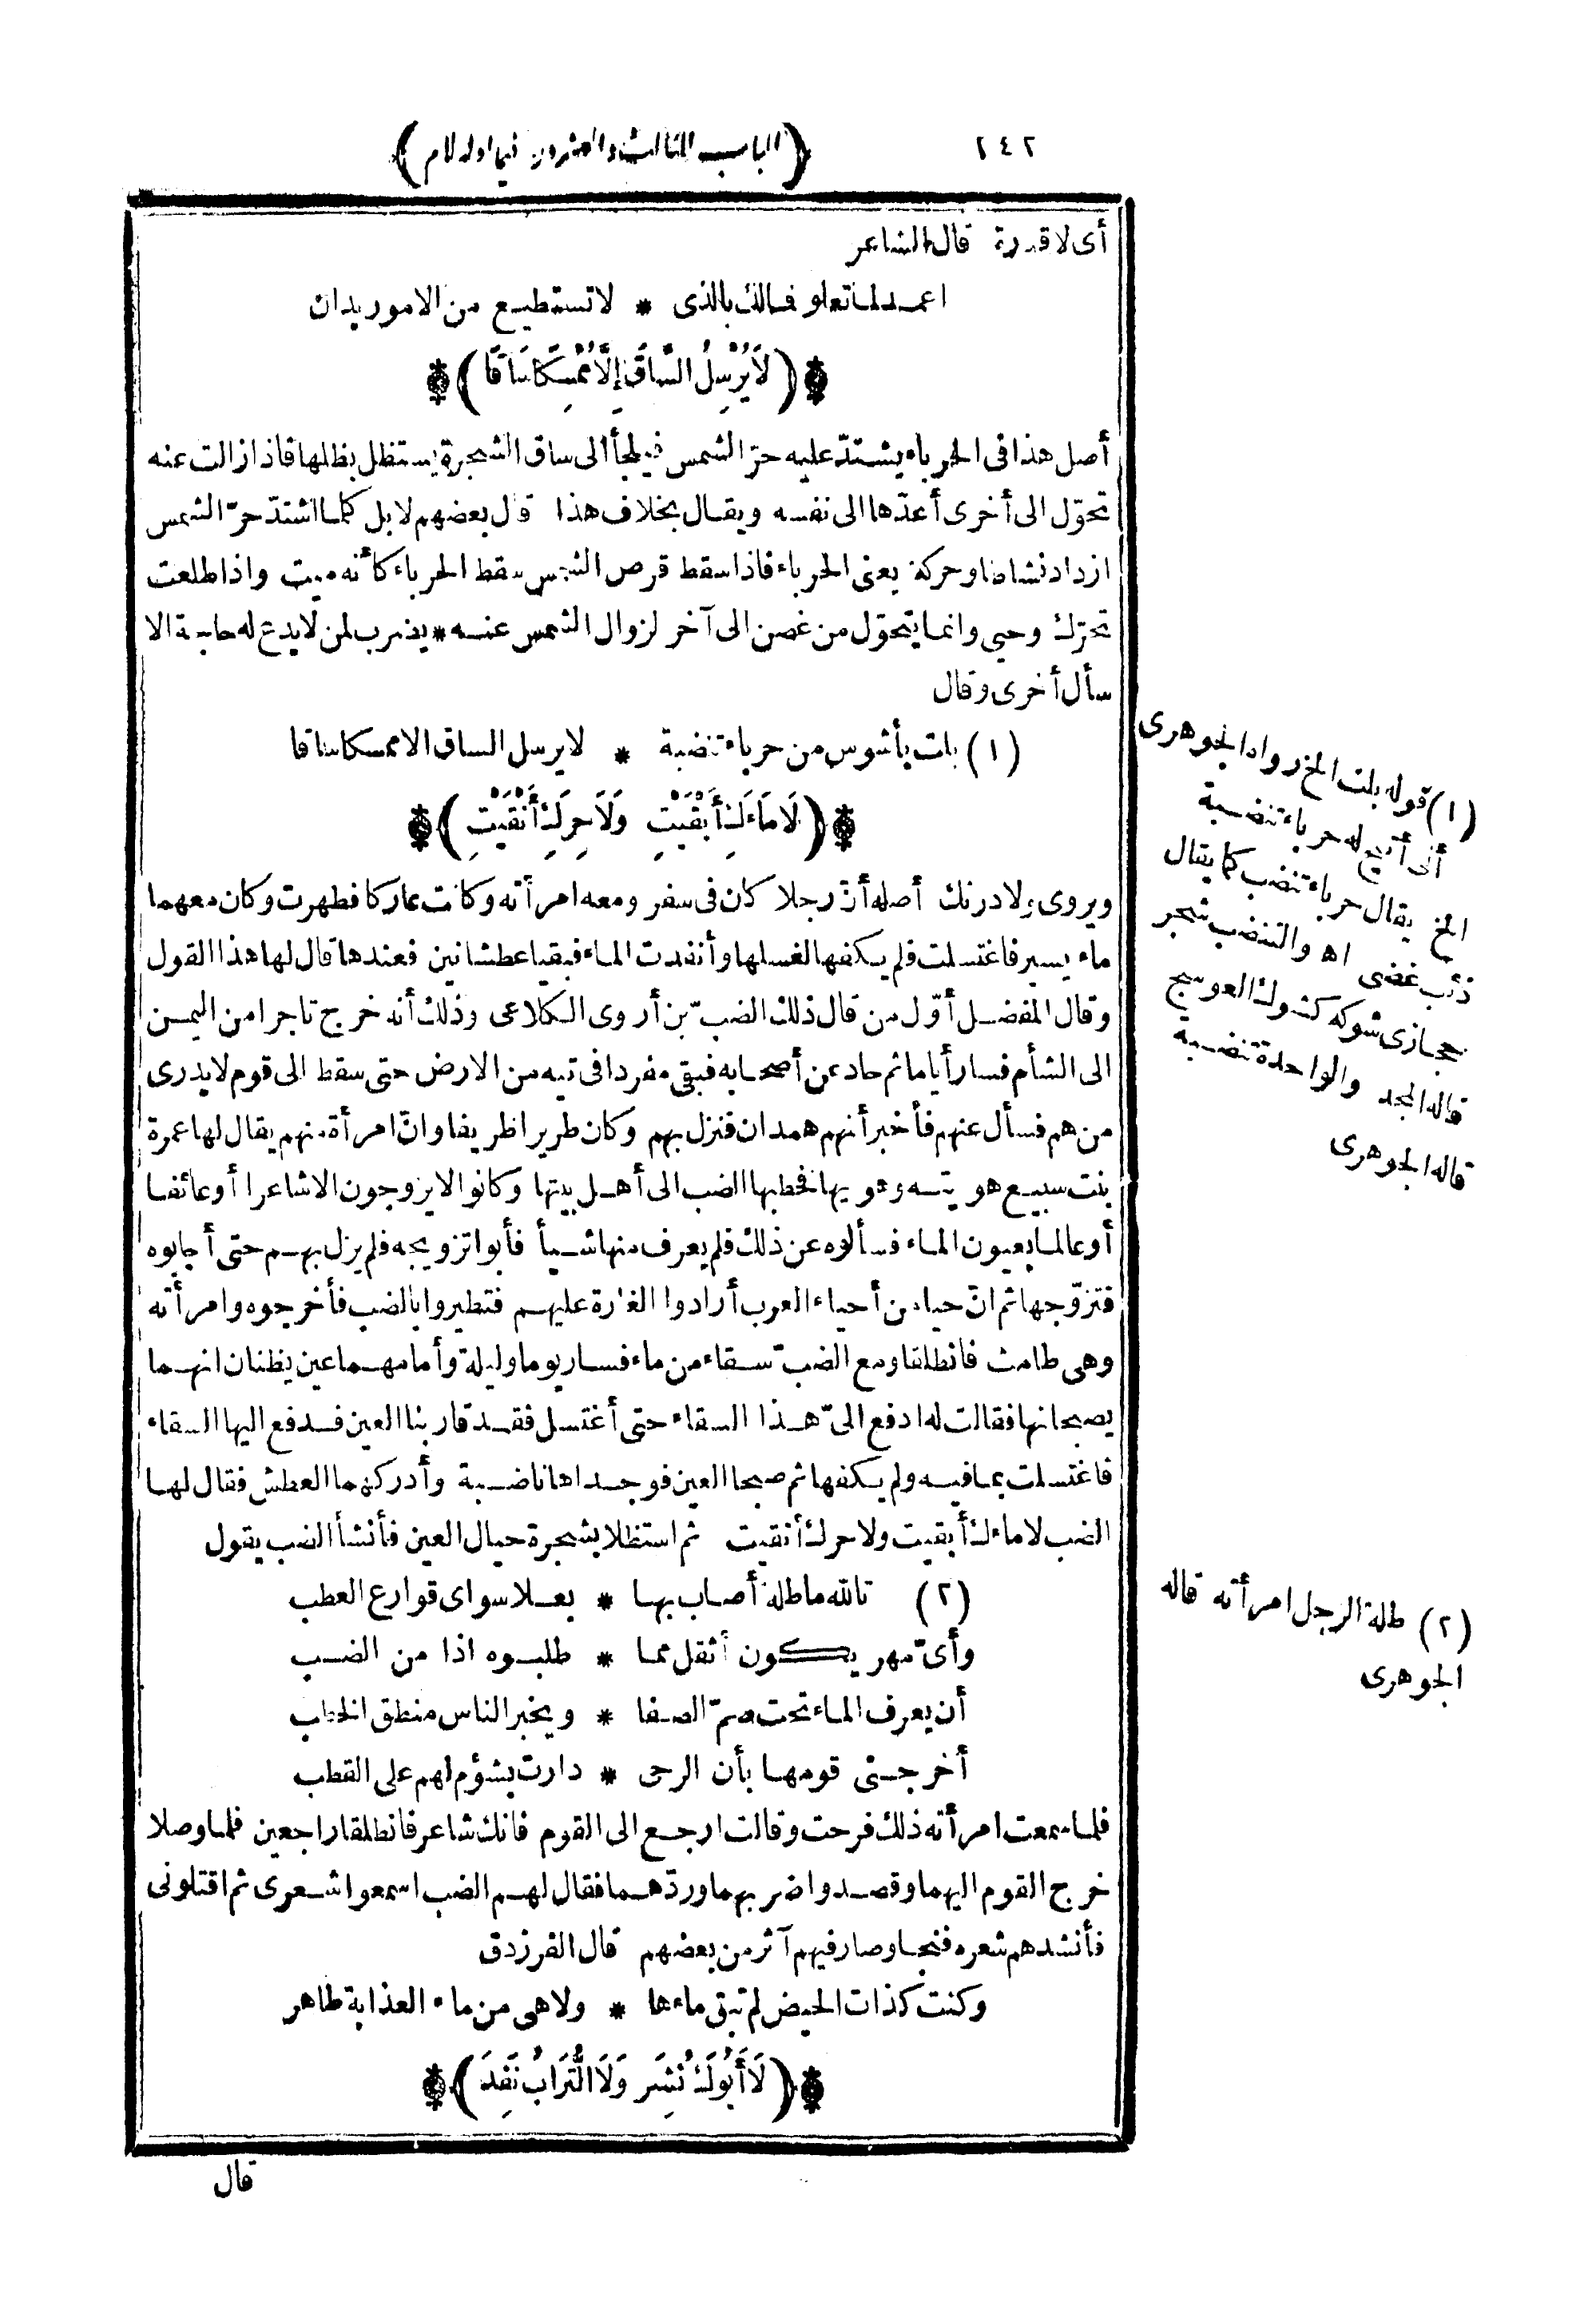 ٢٤٢
﴿الباب الثالث والعشرون فيما اوله لام﴾
أى لا قدرة قال الشاعر
اعمد لما تعلو فمالك بالذى * لا تستطيع من الامور يدان
﴿لَا يُرْسِلُ السَّاقَ إِلَّا مُمْسِكًا سَاقًا﴾
أصل هذا فى الحرباء يشتدّ عليه حرّ الشمس فيلجأ الى ساق الشجرة يستظل بظلها فاذا زالت عنه
تحوّل الى أخرى أعدّها الى نفسه ويقال بخلاف هذا قال بعضهم لا بل كلما اشتدّ حرّ الشمس
ازداد نشاطا وحركة يعنى الحرباء فاذا سقط قرص الشمس سقط الحرباء كأنه ميت واذا طلعت
تحرّك وحيى وانما يتحوّل من غصن الى آخر لزوال الشمس عنه * يضرب لمن لا يدع له حاجة الا
سأل أخرى وقال
(١) بلت بأشوس من حرباء تنضبة * لا يرسل الساق الا ممسكا ساقا
﴿لَا مَاءَكِ أَبْقَيْتِ وَلَا حِرَكِ أَنْقَيْتِ﴾
ويروى ولا درنك أصله أنّ رجلا كان فى سفر ومعه امرأته وكانت عاركا فطهرت وكان معهما
ماء يسير فاغتسلت فلم يكفها لغسلها وأنفدت الماء فبقيا عطشانين فعندها قال لها هذا القول
وقال المفضل أوّل من قال ذلك الضبّ بن أروى الكلاعى وذلك أنه خرج تاجرا من اليمن
الى الشأم فسار أياما ثم حاد عن أصحابه فبقى مفردا فى تيه من الارض حتى سقط الى قوم لا يدرى
من هم فسأل عنهم فأخبر أنهم همدان فنزل بهم وكان طريرا ظريفا وانّ امرأة منهم يقال لها عمرة
بنت سبيع هويته وهويها فخطبها الضب الى أهل بيتها وكانوا لا يزوجون الا شاعرا أو عائفا
أو عالما بعيون الماء فسألوه عن ذلك فلم يعرف منها شيأ فأبوا تزويجه فلم يزل بهم حتى أجابوه
فتزوّجها ثم انّ حيا من أحياء العرب أرادوا الغارة عليهم فتطيروا بالضب فأخرجوه وامرأته
وهى طامث فانطلقا ومع الضبّ سقاء من ماء فسار يوما وليلة وأمامهما عين يظنان انهما
يصبحانها فقالت له ادفع الىّ هذا السقاء حتى أغتسل فقد قاربنا العين فدفع اليها السقاء
فاغتسلت بما فيه ولم يكفها ثم صبحا العين فوجداها ناضبة وأدركهما العطش فقال لها
الضب لا ماءك أبقيت ولا حرك أنقيت ثم استظلا بشجرة حيال العين فأنشأ الضب يقول
(٢) تالله ما طلة أصاب بها * بعلا سواى قوارع العطب
وأىّ مهر يكون أثقل مما * طلبوه اذا من الضب
أن يعرف الماء تحت صمّ الصفا * ويخبر الناس منطق الخطب
أخرجنى قومها بأن الرحى * دارت بشؤم لهم على القطب
فلما سمعت امرأته ذلك فرحت وقالت ارجع الى القوم فانك شاعر فانطلقا راجعين فلما وصلا
خرج القوم اليهما وقصدوا ضربهما وردّهما فقال لهم الضب اسمعوا شعرى ثم اقتلونى
فأنشدهم شعره فنجا وصار فيهم آثر من بعضهم قال الفرزدق
وكنت كذات الحيض لم تبق ماءها * ولا هى من ماء العذابة طاهر
﴿لَا أَبُوكَ نُشِرَ وَلَا التُّرَابُ نَفِدَ﴾
قال
(١) قوله بلت الخ رواه الجوهرى
أنى أتيح له حرباء تنضبة
الخ يقال حرباء تنضب كما يقال
ذئب غضى اه والتنضب شجر
حجازى شوكه كشوك العوسج
قاله المجد والواحدة تنضبة
قاله الجوهرى
(٢) طلة الرجل امرأته قاله
الجوهرى